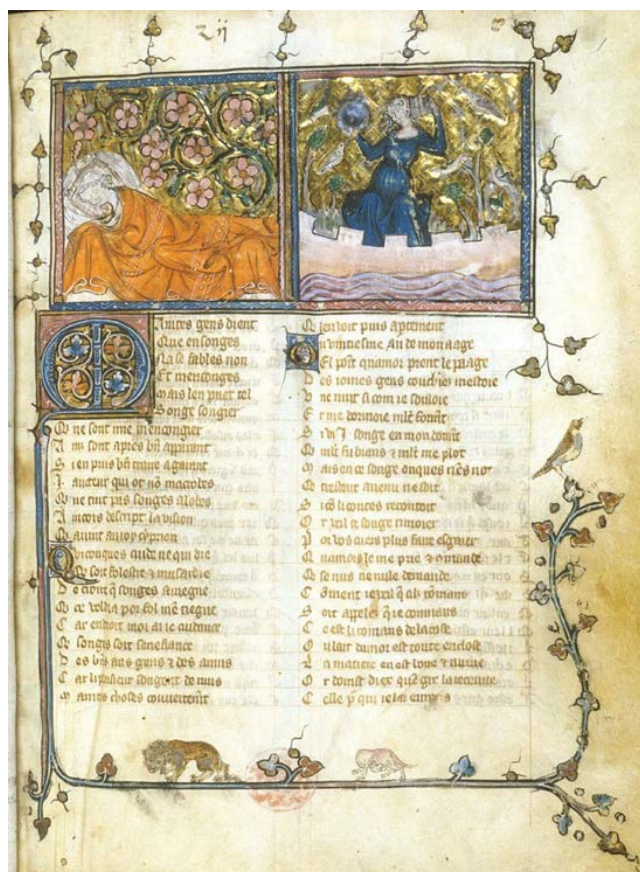 Zij
Aintes gens dient
Que en songes
Na se fables non
Et menconges
Mais len puet tel
Songe songier
Q ne sont mie mencongier
A ins sont apres bn apparant
S i en puis bn trove a garant
I aucteur qui ot non macrobes
Q ne tint pas songes a lobes
A incois descript la vision
Q avint au roy cyprion
Quiconques cuide ne qui die
Q soit folestie & musardie
D e croire q songes aviegne
Q ce voldra por fol men tiegne
C ar endroit moi ai ie cuidance
Q songes soit senefiance
D es bns aus gens & des anuis
C ar li pluseur songent de nuis
M aintes choses couvertemt
Q len voit puis aptement
Ou vintiesme an de mon aage
El point quamor prent le paage
D es iones gens couchies mestoie
U ne nuit si com ie souloie
E t me dormoie mlt formt
S i vi I songe en mon dormt
Q mlt fu biaus & mlt me plot
M ais en ce songe onques riens not
Q trestout avenu ne soit
S i co li songes recontoit
O r vueil ce songe rimoier
P or vos cuers plus faire esgaier
Q amors le me prie & comande
E se nus ne nule demande
C oment ie vueil q cils romans
S oit appeles q ie commans
C e est li romans de la rose
O u lart damor est toute enclose
L a matiere en est bone & nueve
O r doinst diex quen gre la recoive
C elle por qui ie lai empris